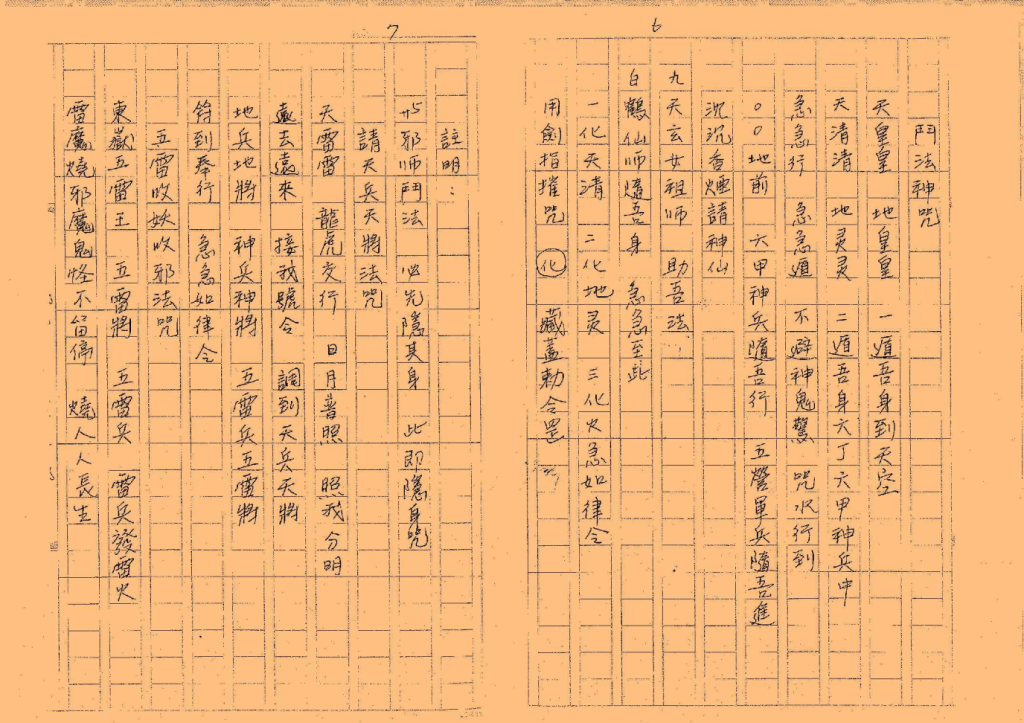 6
鬥法神咒
天皇皇 地皇皇 一遁吾身到天空
天清清 地灵灵 二遁吾身六丁六甲神兵中
急急行 急急遁 不避神鬼驚 咒水行到
○○地前 六甲神兵隨吾行 五營軍兵隨吾進
沉沉香煙請神仙
九天玄女祖师 助吾法
白鶴仙师隨吾身 急急至此
一化天清 二化地灵 三化火急如律令
用劍指摧咒 化 藏蓋勅令罡
7
註明:
邪师鬥法 必先隱其身 此即隱身咒
請天兵天將法咒
天雷雷 龍虎交行 日月普照 照我分明
遠去遠來 接我號令 調到天兵天將
地兵地將 神兵神將 五雷兵五雷將
符到奉行 急急如律令
五雷收妖收邪法咒
東嶽五雷王 五雷將 五雷兵 雷兵發雷火
雷魔燒邪魔鬼怪不留停 燒人人長生